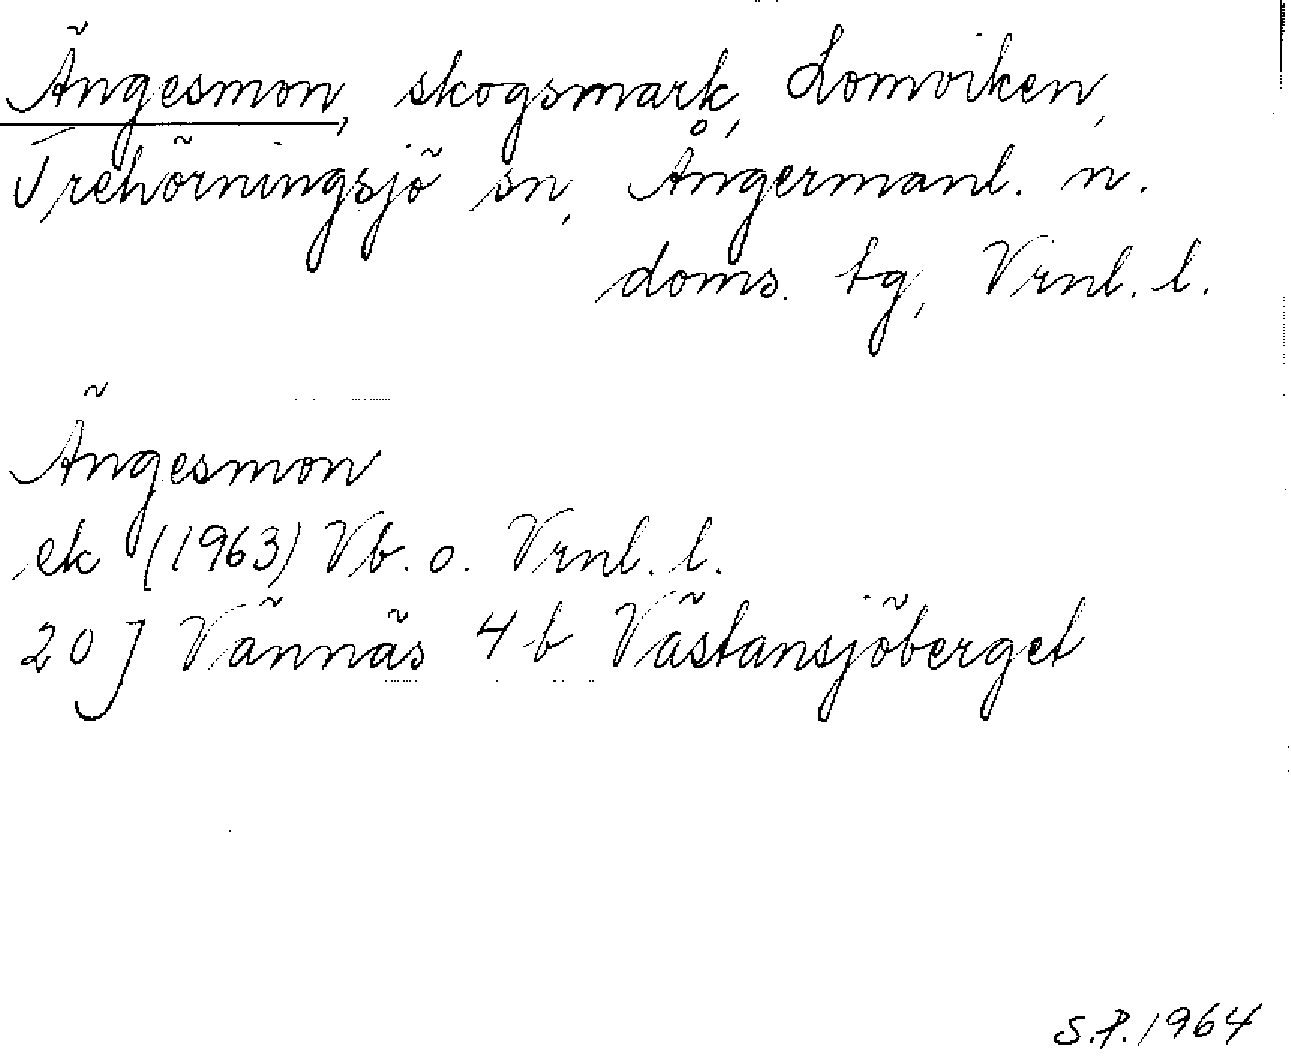 Ängesmon, skogsmark, Lomviken,
Trehörningsjö sn, Ångermanl. n.
doms. tg, Vrnl. l.
Ängesmon
ek (1963) Vb. o. Vrnl. l.
20 J Vännäs 4 b Västansjöberget
S.P. 1964